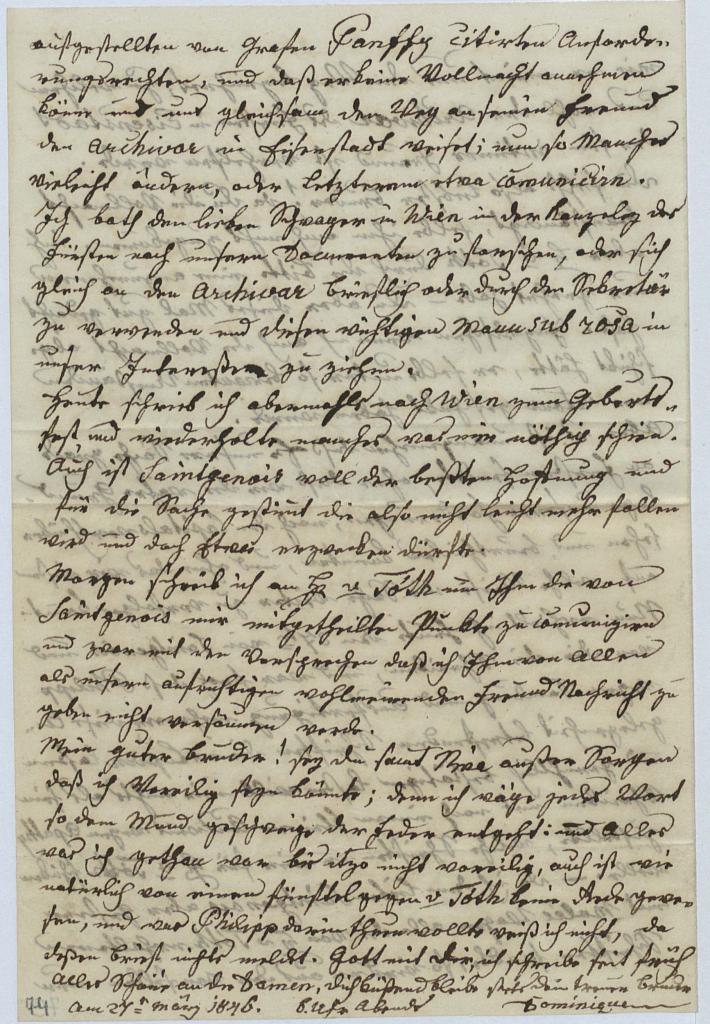 ausgestellten von Grafen Panffy citirten Anforde-
rungsrechten, und daß er keine Vollmacht annehmen
könne und uns gleichsam den Weg an seinen Freund
den Archivar in Eisenstadt weiset; nun so Manches
vieleicht ändern, oder Letzterem etwa comuniciren.
Ich bath den lieben Schwager in Wien in der Kanzeley des
Fürsten nach unsern Documenten zu forschen, oder sich
gleich an den Archivar brieflich oder durch den Sekretär
zu verwenden und diesen wichtigen Mann sub rosa in
unser Interesse zu ziehen.
Heute schrieb ich abermahls nach Wien zum Geburts-
fest, und wiederholte manches was mir nöthig schien.
Auch ist Saintgenois voll der beßten Hoffnung und
für die Sache gestimt die also nicht leicht mehr fallen
wird und doch Etwas erzwecken dürfte.
Morgen schreib ich an H v Tóth um Ihm die von
Saintgenois mir mitgetheilten Punkte zu comunizirn
und zwar mit den Versprechen daß ich Ihm von Allen
als unsern aufrichtigen wohlmeinenden Freund Nachricht zu
geben nicht versäumen werde.
Mein guter Bruder! sey du samt Nina außer Sorgen
daß ich Voreilig seyn könnte; denn ich wäge jedes Wort
so dem Mund geschweige der Feder entgeht: und Alles
was ich gethan war bis itzo nicht voreilig, auch ist wie
natürlich von einen fünftel gegen v Tóth keine Rede gewe-
sen, und was Philipp darin thuen wollte weiß ich nicht, da
deßen Brief nichts meldet. Gott mit dir, ich schreibe seit früh
Alles Schöne an die Damen, dich küßend bleibe stets dein treuer Bruder
Am 27n März 1846. 6 Uhr Abends Dominique
74